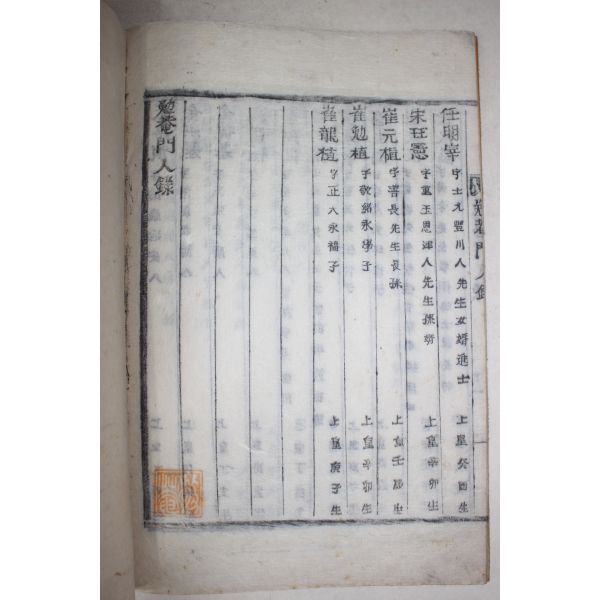 任明宰 字士九豐川人先生女壻進士 上皇癸酉生
宋珏憲 字重玉恩津人先生孫壻 上皇辛卯生
崔元植 字善長先生長孫 上皇壬辰生
崔勉植 字敬銘永學子 上皇辛卯生
崔龍植 字正大永福子 上皇庚子生
勉菴門人錄
勉菴門人錄